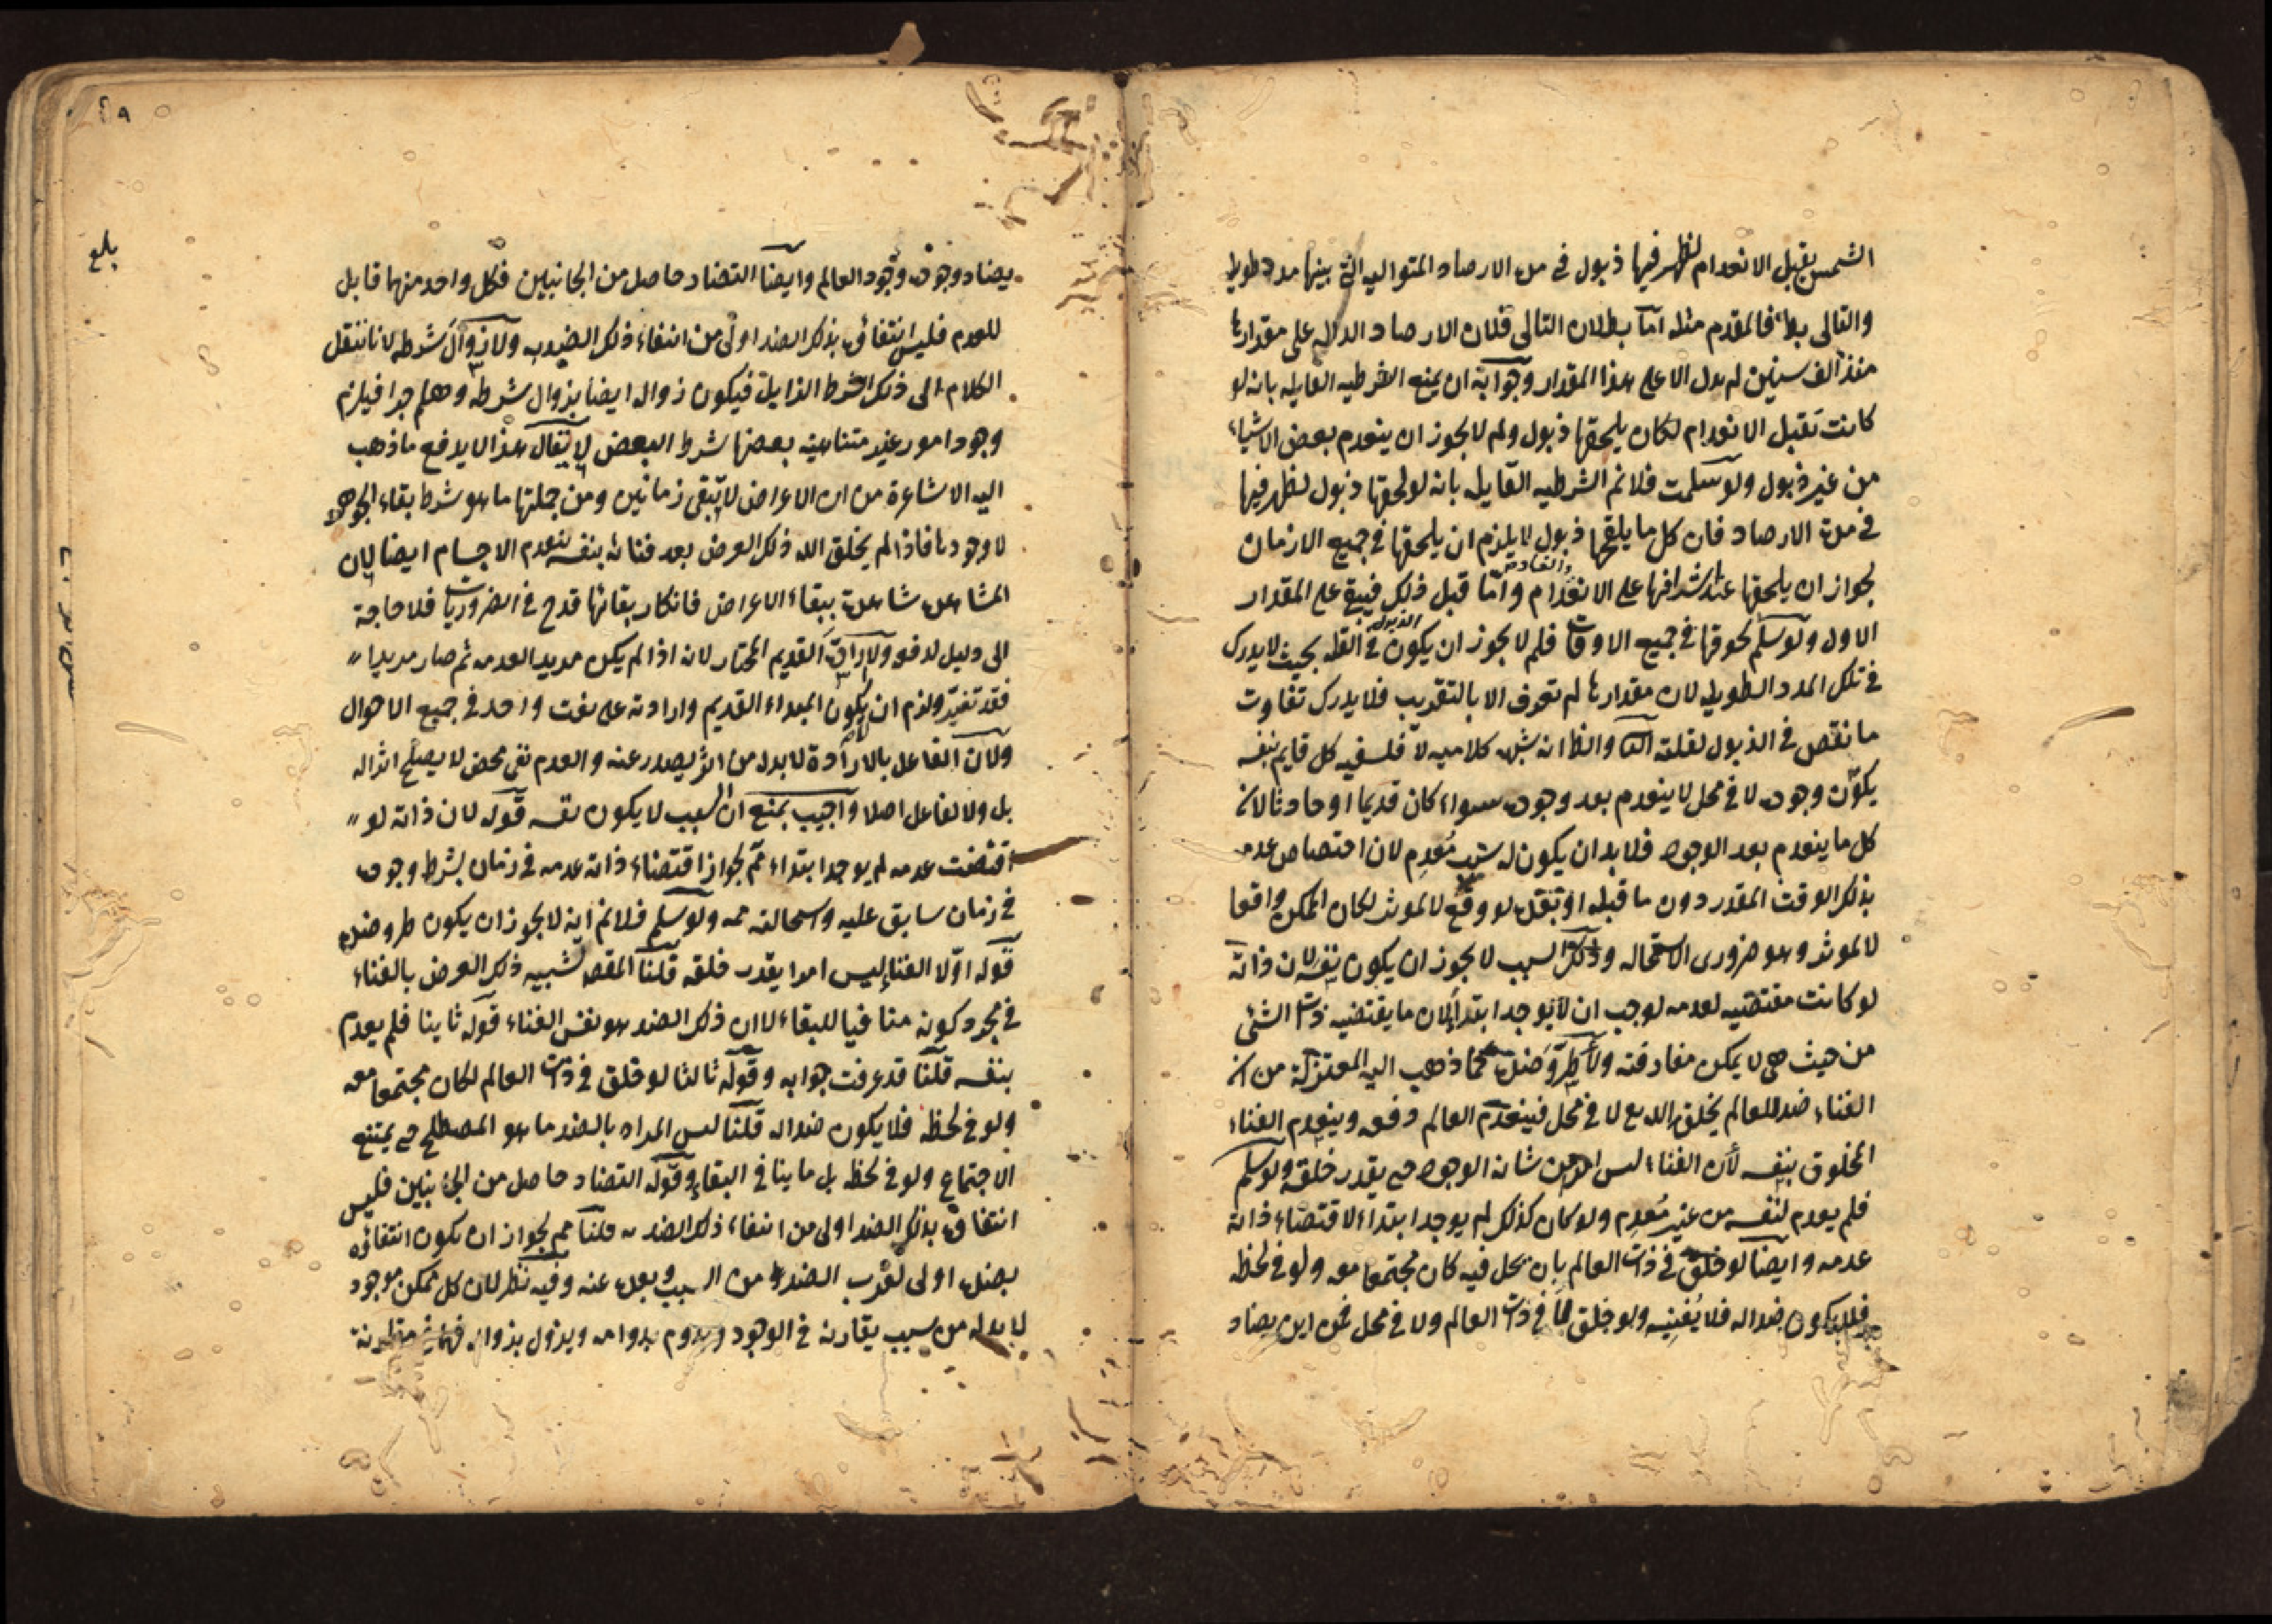 الشمس يقبل الانعدام لظهر فيها ذبول في مدة الارصاد المتوالية التي بينها مدد طويلة
والتالى بط فالمقدم مثله اما بطلان التالى فلان الارصاد الدالة على مقدارها
منذ الف سنين لم يدل الا على هذا المقدار وجوابه ان يمنع الشرطيه القايله بانه لو
كانت تقبل الانعدام لكان يلحقها ذبول ولم لا يجوز ان ينعدم بعض الاشياء
من غير ذبول ولو سلمت فلانم الشرطيه القايله بانه لو لحقها ذبول لظهر فيها
في مدة الارصاد فان كل ما يلحقها ذبول لا يلزم ان يلحقها في جميع الازمان
لجواز ان يلحقها عند اشرافها على الانعدام واما قبل ذلك فيبقى على المقدار
الاول ولو سلم لحوقها في جميع الاوقات فلم لا يجوز ان يكون الذبول في القلة بحيث لا يدرك
في تلك المدد الطويله لان مقدارها لم تعرف الا بالتقريب فلا يدرك تفاوت
ما نقص في الذبول لقلته وانها شبهه كلاميه لا فلسفيه كل قايم بنفسه
يكون وجوده لا في محل لا ينعدم بعد وجوده سواء كان قديما او حادثا لانه
كل ما ينعدم بعد الوجود فلا بد ان يكون له سبب معدم لان اختصاص عدمه
بذلك الوقت المقدر دون ما قبله او بعده لو وقع لا لموثر لكان الممكن واقعا
لا لموثر وهو ضرورى الاستحاله وذلك السبب لا يجوز ان يكون نفسه لان ذاته
لو كانت مقتضيه لعدمه لوجب ان لا يوجد ابتداء لان ما يقتضيه ذات الشئ
من حيث هى لا يمكن مفارقته ولا طرو ضده كما ذهب اليه المعتزلة من انه
الفناء ضد للعالم يخلق الله تع لا في محل فينعدم العالم دفعه وينعدم الفناء
المخلوق بنفسه لأن الفناء ليس امرا من شانه الوجود حتى يقدر خلقه ولو سلم
فلم يعدم لنفسه من غير معدم ولو كان كذلك لم يوجد ابتداء لاقتضاء ذاته
عدمه وايضا لو خلق في ذات العالم بان يحل فيه كان مجتمعا معه ولو في لحظه
فلا يكون ضدا له فلا يفنيه ولو خلق لا في ذات العالم ولا في محل فمن اين يضاد
يضاد وجوده وجود العالم وايضا التضاد حاصل من الجانبين فكل واحد منهما قابل
للعدم فليس انتفائه بذلك الضد اولى من انتفاء ذلك الضد به ولا زوال شرطه لانا ننقل
الكلام الى ذلك الشرط الزايل فيكون زواله ايضا بزوال شرطه وهلم جرا فيلزم
وجود امور غير متناهيه بعضها شرط البعض لا يقال هذا لا يدفع ما ذهب
اليه الاشاعرة من ان الاعراض لا تبقى زمانين ومن جملتها ما هو شرط بقاء الجوهر
لا وجودها فاذا لم يخلق الله ذلك العرض بعد فنائه بنفسه تنعدم الاجسام ايضا لان
المشاهده شاهدة ببقاء الاعراض فانكار بقائها قدح في الضروريات فلا حاجة
الى دليل لدفعه ولا ارادة القديم المختار لانه اذا لم يكن مريدا لعدمه ثم صار مريدا
فقد تغير ولزم ان يكون المبداء القديم وارادته على نعت واحد في جميع الاحوال
ولان الفاعل بالارادة لا بد له من اثر يصدر عنه والعدم نفى محض لا يصلح اثرا له
بل ولا لفاعل اصلا واجيب بمنع ان السبب لا يكون نفسه قوله لان ذاته لو
اقتضت عدمه لم يوجد ابتداء مم لجواز اقتضاء ذاته عدمه في زمان بشرط وجوده
في زمان سابق عليه واستحالته مم ولو سلم فلانم انه لا يجوز ان يكون طرو ضده
قوله اولا الفناء ليس امرا يقدر خلقه قلنا المقصد تشبيه ذلك العرض بالفناء
في مجرد كونه منافيا للبقاء لا ان ذلك الضد هو نفس الفناء قوله ثانيا فلم يعدم
بنفسه قلنا قد عرفت جوابه وقوله ثالثا لو خلق في ذات العالم لكان مجتمعا معه
ولو في لحظه فلا يكون ضدا له قلنا ليس المراد بالضد ما هو المصطلح حتى يمتنع
الاجتماع ولو في لحظه بل ما ينافي البقاء وقوله التضاد حاصل من الجانبين فليس
انتفاؤه بذلك الضد اولى من انتفاء ذلك الضد به قلنا مم لجواز ان يكون انتفاؤه
بضده اولى لقرب الضد من السبب وبعده عنه وفيه نظر لان كل ممكن موجود
لا بد له من سبب يقارنه في الوجود ويدوم بدوامه ويزول بزواله
بلغ